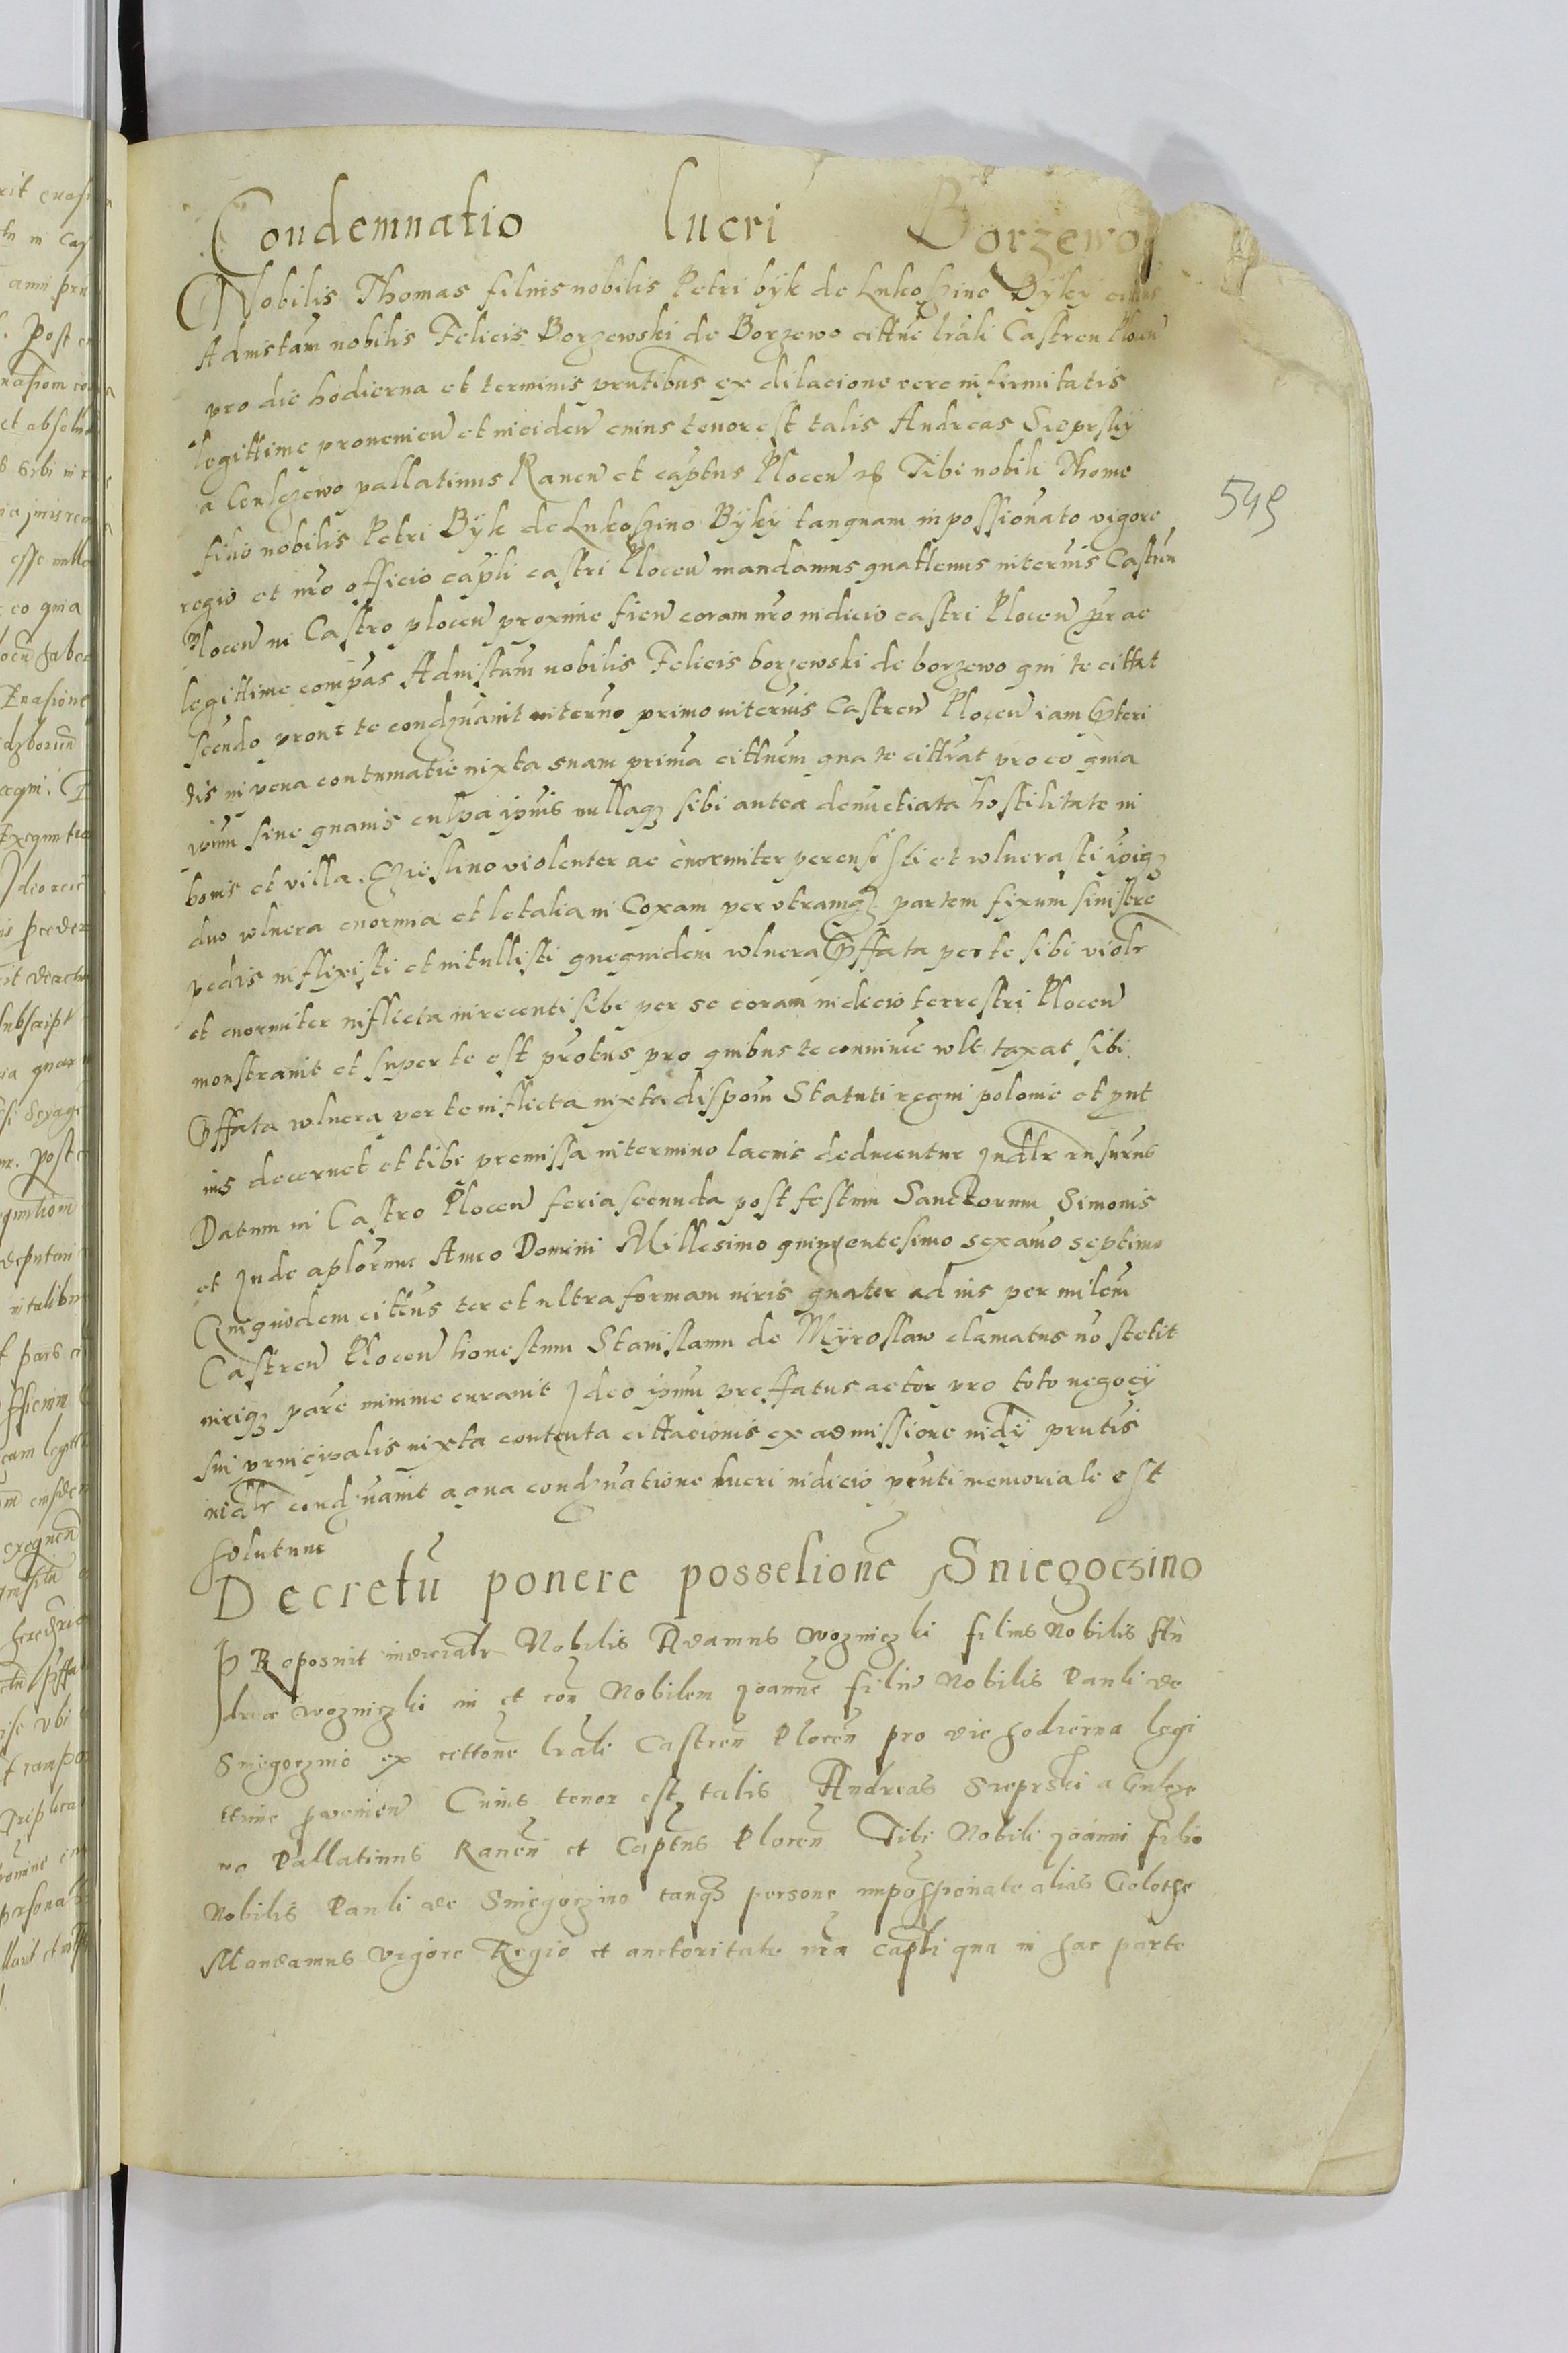 Condemnatio lucri Borzewo
Nobilis Thomas filius nobilis Petri byk de Lukoszino Byky
Ad instam nobilis Felicis Borzewski de Borzewo cittne lrali Castren Plocen
pro die hodierna et terminis prntibus ex dilacione vere infirmitatis
legittime provenien et inciden cuius tenor est talis Andreas Sieprsky
a Gulczewo pallatinus Raven et captus Plocen Tibi nobili Thome
filio nobilis Petri Byk de Lukoszino Byky tanquam inpossionato vigore
regio et nro officio capli castri Plocen mandamus quattenus in terinis Castren
Plocen in Castro plocen proxime fien coram nro iudicio castri Plocen pr ac
legittime compas Ad instam nobilis Felicis borzewski de borzewo qui te cittat
scendo prout te condznavit in terno primo in terinis Castren Plocen iam pteri
tis in pena contumatie iuxta suam primam cittnem qua te cittrat pro eo quia
ipum sine quavis culpa ipius nullaqz sibi antea denunctiata hostilitate in
bonis et villa violenter ac enormiter percussisti et wlnerasti ipiqz
duo wlnera enormia et letalia in Coxam per utramqz partem fixum sinistre
pedis inflixisti et intullisti quequidem wlnera pffata per te sibi violr
et enormiter inflicta in recenti sibi per se coram iudicio terrestri Plocen
monstravit et super te est protus pro quibus te convince wlt taxat sibi
pffata wlnera per te inflicta iuxta dispom Statuti regni polonie et put
ius decernet et tibi premissa in termino lacius deducentur Judlr rnsurus
Datum in Castro Plocen feria secunda post festum Sanctorum Simonis
et Jude aplorum Anno Domini Millesimo quingentesimo sexamo septimo
Quiquidem cittus ter et ultra formam iuris quater ad ius per milem
Castren Plocen honestum Stanislaum de Myroslaw clamatus no stetit
iuriqz pare minime curavit Ideo ipum preffatus actor pro toto negocy
sui principalis iuxta contenta cittacionis ex admissione iudy prntis
iudlr condznavit a qua condznatione lucri iudicio prnti memoriale est
solutum
Decretu ponere possesione Sniegoczino
PRoposuit iudicialr Nobilis Adamus Wozniczki filius Nobilis An
dree Wozniczki in et con Nobilem Joanne filiu Nobilis Pauli de
Sniegoczino ex cittone lrali Castren Plocen pro die hodierna legi
ttime provenien Cuius tenor est talis Andreas Sieprski a Gulcze
wo Pallatinus Raven et Captus Plocen Tibi Nobili Joanni filio
Nobilis Pauli de Sniegoczino tanqz persone impossionate alias Golothe
Mandamus vigore Regio et auctoritate nra capli qua in hac parte
545